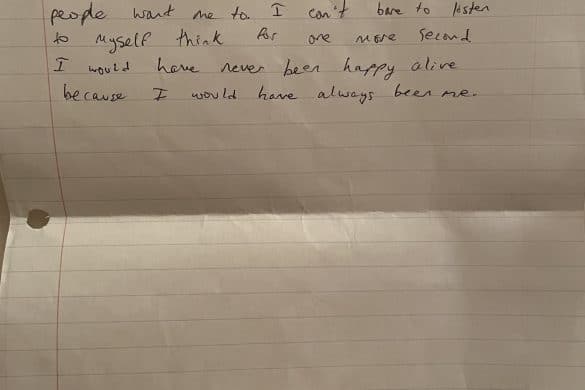 people want me to. I can't bare to listen
to myself think for one more second
I would have never been happy alive
because I would have always been me.